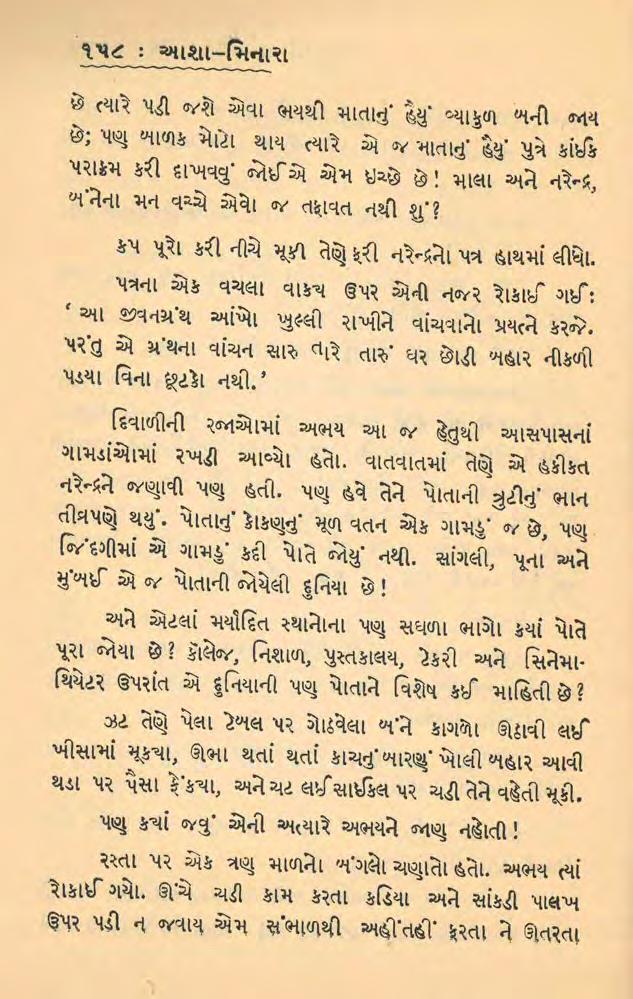 ૧૫૮ : આશા–મિનારા
છે ત્યારે પડી જશે એવા ભયથી માતાનું હૈયું વ્યાકુળ બની જાય
છે; પણ બાળક મોટો થાય ત્યારે એ જ માતાનું હૈયું પુત્રે કાંઈક
પરાક્રમ કરી દાખવવું જોઈએ એમ ઇચ્છે છે! માલા અને નરેન્દ્ર,
બંનેના મન વચ્ચે એવો જ તફાવત નથી શું?
કપ પૂરો કરી નીચે મૂકી તેણે ફરી નરેન્દ્રનો પત્ર હાથમાં લીધો.
પત્રના એક વચલા વાક્ય ઉપર એની નજર રોકાઈ ગઈ:
‘ આ જીવનગ્રંથ આંખો ખુલ્લી રાખીને વાંચવાનો પ્રયત્ને કરજે.
પરંતુ એ ગ્રંથના વાંચન સારુ તારે તારું ઘર છોડી બહાર નીકળી
પડયા વિના છૂટકો નથી.’
દિવાળીની રજાઓમાં અભય આ જ હેતુથી આસપાસનાં
ગામડાંઓમાં રખડી આવ્યો હતો. વાતવાતમાં તેણે એ હકીકત
નરેન્દ્રને જણાવી પણ હતી. પણ હવે તેને પોતાની ત્રુટીનું ભાન
તીવ્રપણે થયું. પોતાનું કોકણનું મૂળ વતન એક ગામડું જ છે, પણ
જિંદગીમાં એ ગામડું કદી પોતે જોયું નથી. સાંગલી, પૂના અને
મુંબઈ એ જ પોતાની જોયેલી દુનિયા છે!
અને એટલાં મર્યાદિત સ્થાનોના પણ સઘળા ભાગો કયાં પોતે
પૂરા જોયા છે? કૉલેજ, નિશાળ, પુસ્તકાલય, ટેકરી અને સિનેમા-
થિયેટર ઉપરાંત એ દુનિયાની પણ પોતાને વિશેષ કઈ માહિતી છે?
ઝટ તેણે પેલા ટેબલ પર ગોઠવેલા બંને કાગળો ઊઠાવી લઈ
ખીસામાં મૂકયા, ઊભા થતાં થતાં કાચનું બારણું ખોલી બહાર આવી
થડા પર પૈસા ફેંકયા, અને ચટ લઈ સાઈકલ પર ચડી તેને વહેતી મૂકી.
પણ કયાં જવું એની અત્યારે અભયને જાણ નહોતી!
રસ્તા પર એક ત્રણ માળનો બંગલો ચણાતો હતો. અભય ત્યાં
રોકાઈ ગયો. ઊંચે ચડી કામ કરતા કડિયા અને સાંકડી પાલખ
ઉપર પડી ન જવાય એમ સંભાળથી અહીંતહીં ફરતા ને ઊતરતા